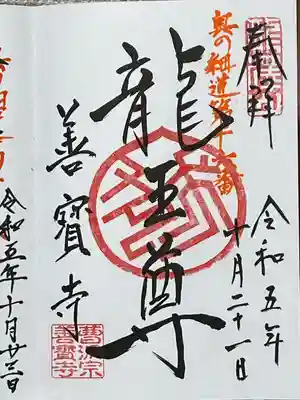 奉拝
奥の細道第十六番
龍王尊
善寳寺
令和五年
十月二十一日
曹洞宗
善寳寺
令和五年十月廿三日